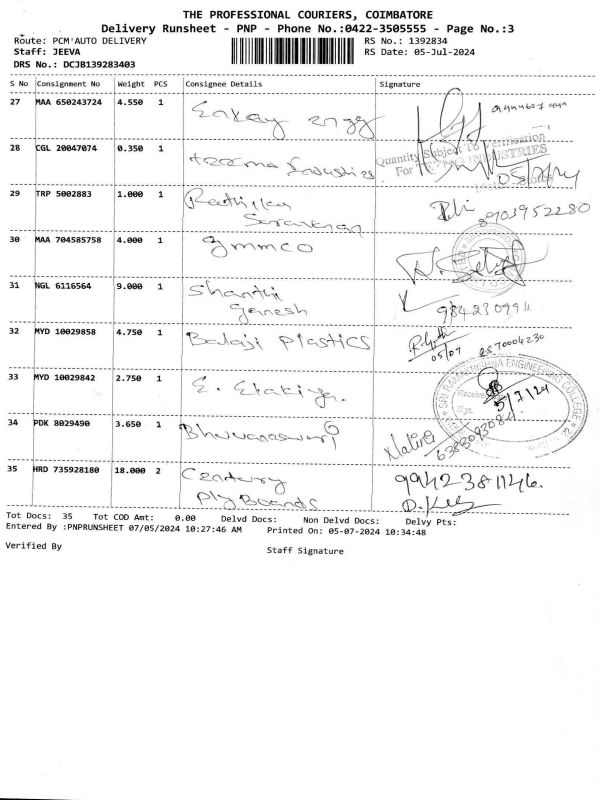 THE PROFESSIONAL COURIERS, COIMBATORE
Delivery Runsheet - PNP - Phone No.:0422-3505555 - Page No.:3
Route: PCM'AUTO DELIVERY RS No.: 1392834
Staff: JEEVA RS Date: 05-Jul-2024
DRS No.: DCJB139283403
S No Consignment No Weight PCS Consignee Details Signature
27 MAA 650243724 4.550 1
28 CGL 20047074 0.350 1
Quantity Subject To Verification
For INDUSTRIES
29 TRP 5002883 1.000 1 8903952280
30 MAA 704585758 4.000 1 gmmco
31 NGL 6116564 9.000 1 Shanthi
Ganesh 984230994
32 MYD 10029858 4.750 1 Balaji Plastics
05/07 8870004230
33 MYD 10029842 2.750 1 E.
SRI RAMAKRISHNA ENGINEERING COLLEGE
5/7/24
34 PDK 8029490 3.650 1 Bhuvaneswari
35 HRD 735928180 18.000 2 Century 9942381146.
Ply Boards
Tot Docs: 35 Tot COD Amt: 0.00 Delvd Docs: Non Delvd Docs: Delvy Pts:
Entered By :PNPRUNSHEET 07/05/2024 10:27:46 AM Printed On: 05-07-2024 10:34:48
Verified By Staff Signature